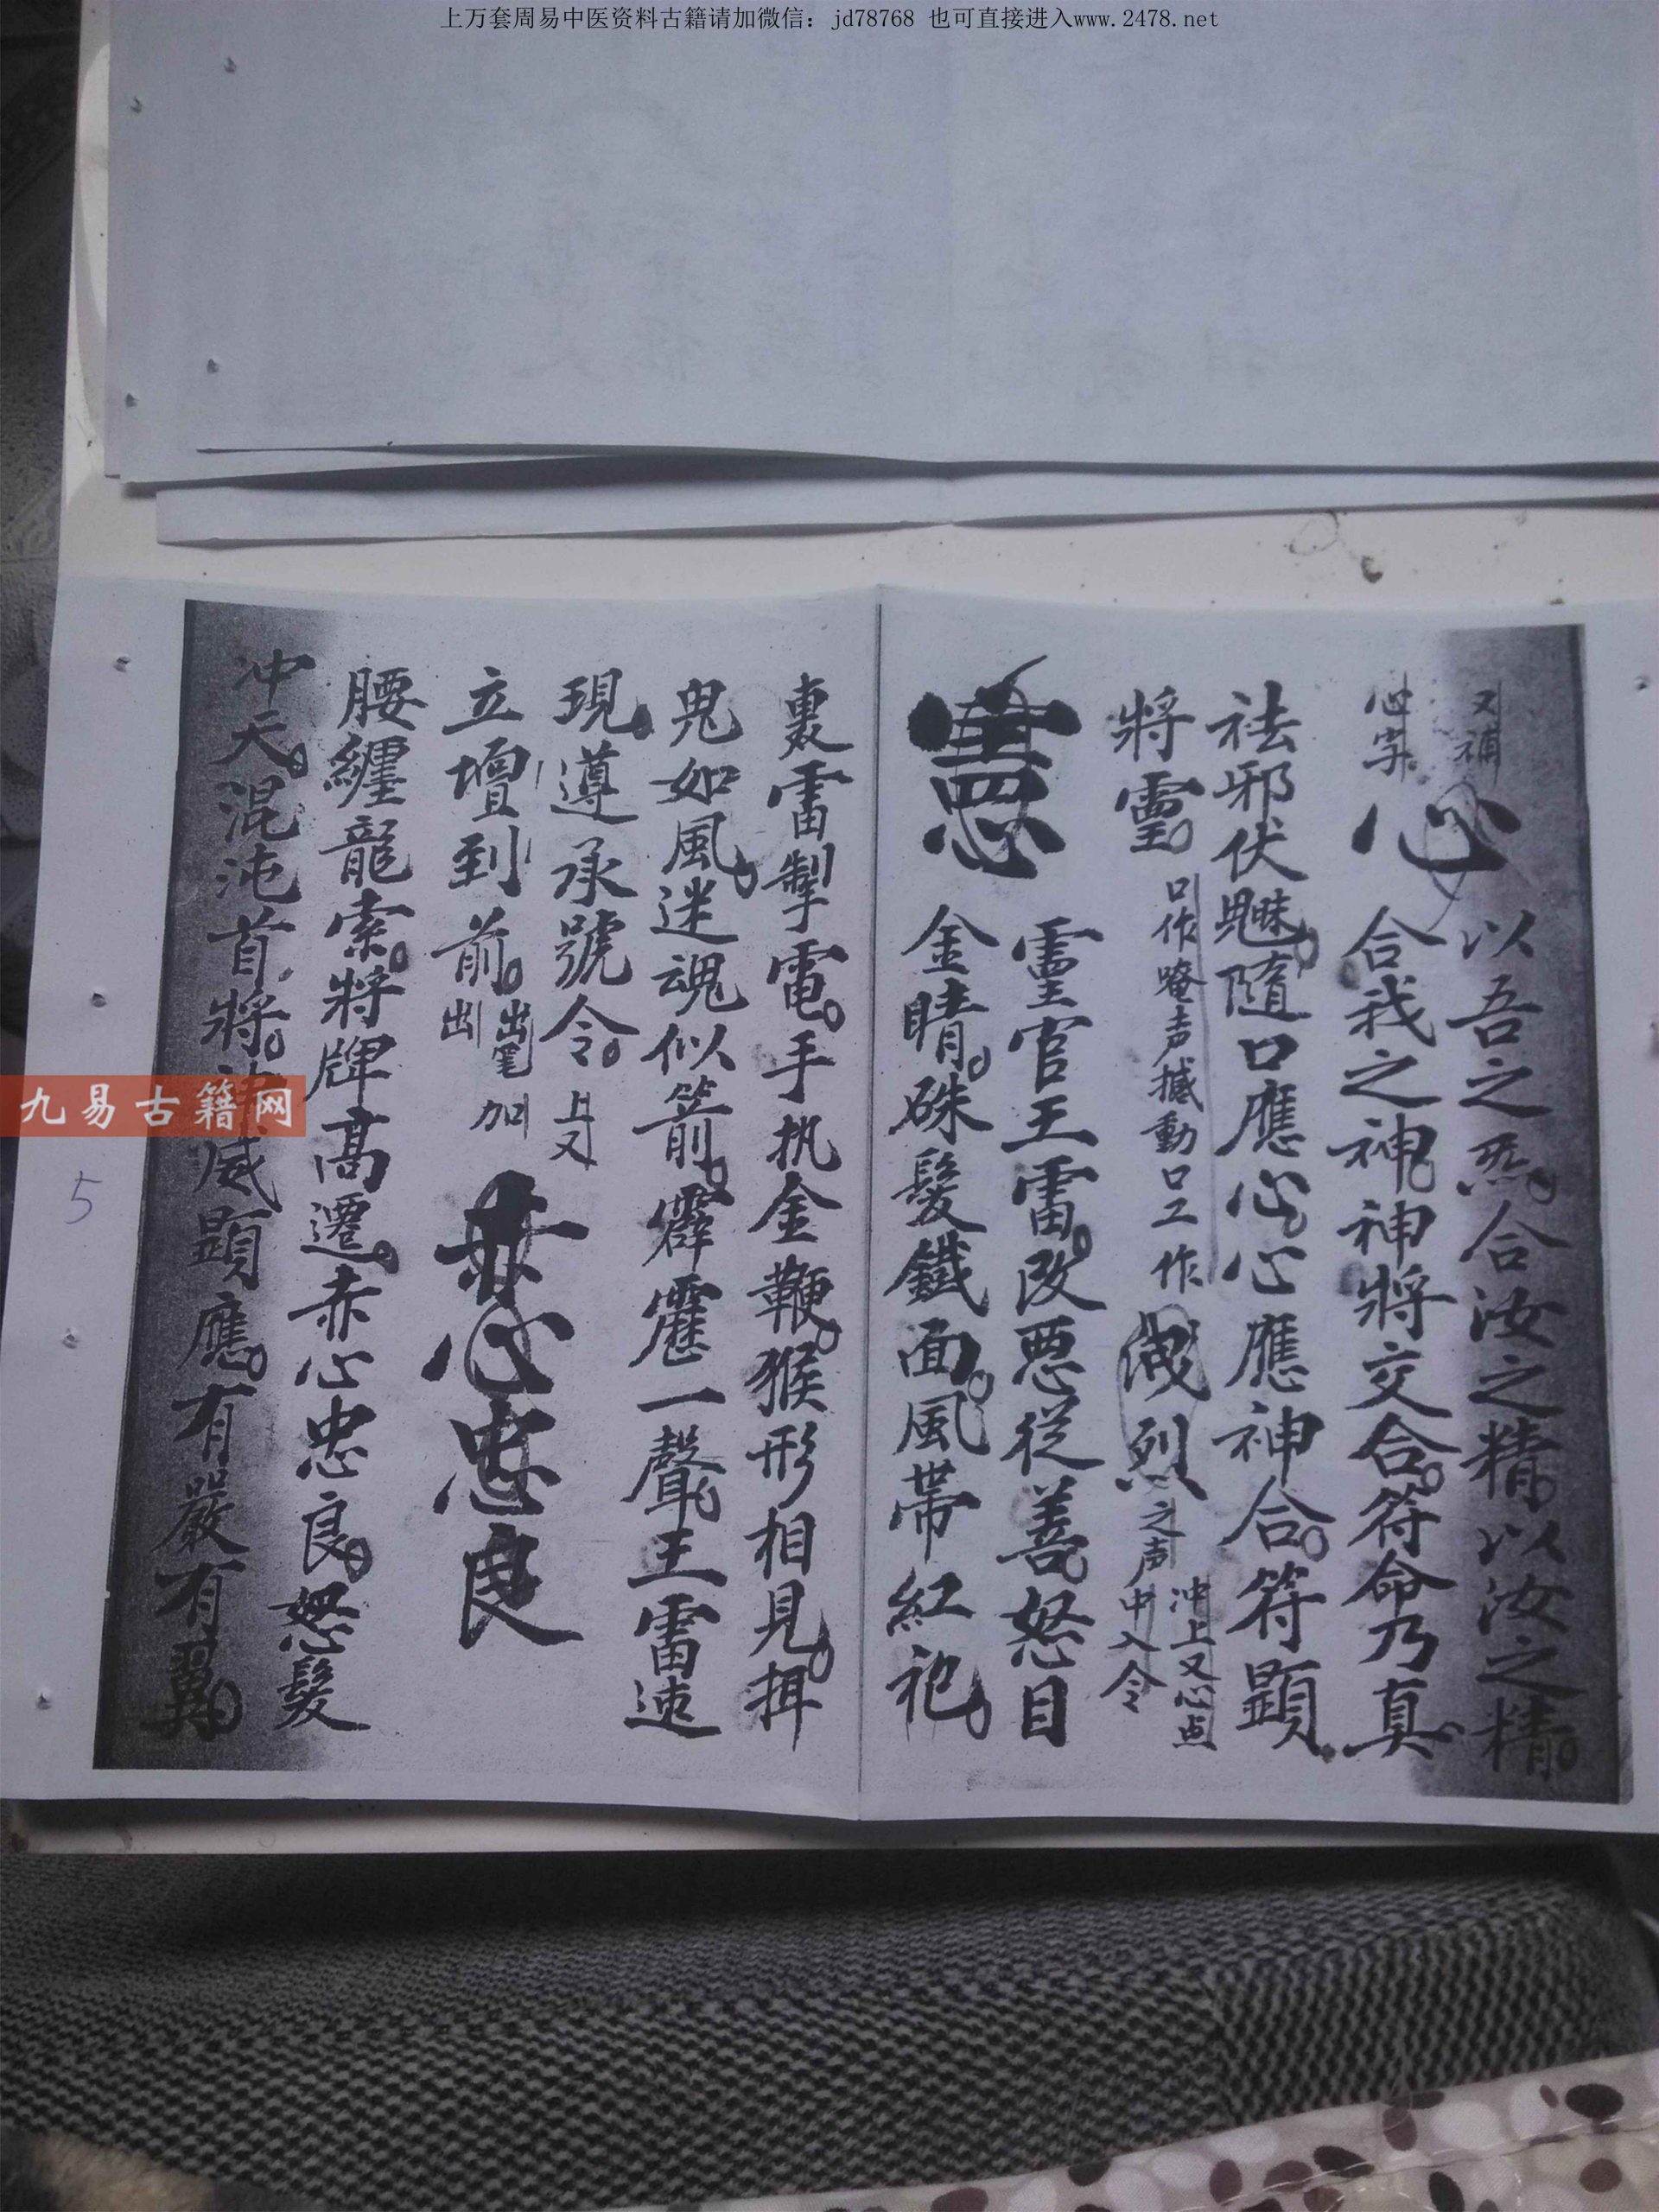 上万套周易中医资料古籍请加微信：jd78768 也可直接进入www.2478.net
又補
心字
心
以吾之炁。合汝之精。以汝之精。
合我之神。神將交合。符命乃真。
祛邪伏魅。隨口應心。心應神合。符顕
將靈。
口作唵声撼動口工作
烈
之声
冲上又心点
中入令
靈官王雷。改悪從善。怒目
金睛。硃髮鐵面。風帯紅袍。
裏雷掣電。手执金鞭。猴形相見。揖
鬼如風。迷魂似箭。霹靂一聲。王雷速
現。遵承號令。
上又
立壇到前。
出筆
出
加
赤心忠良
腰纏龍索。將牌高遷。赤心忠良。怒髮
冲天。混沌首將。威顕應。有嚴有翼。
九易古籍网
5